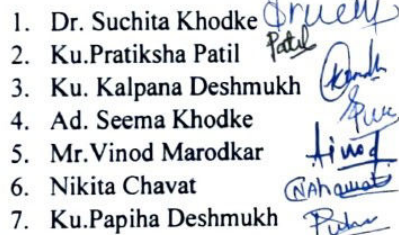 1. Dr. Suchita Khodke
2. Ku.Pratiksha Patil Patil
3. Ku. Kalpana Deshmukh
4. Ad. Seema Khodke
5. Mr.Vinod Marodkar
6. Nikita Chavat
7. Ku.Papiha Deshmukh